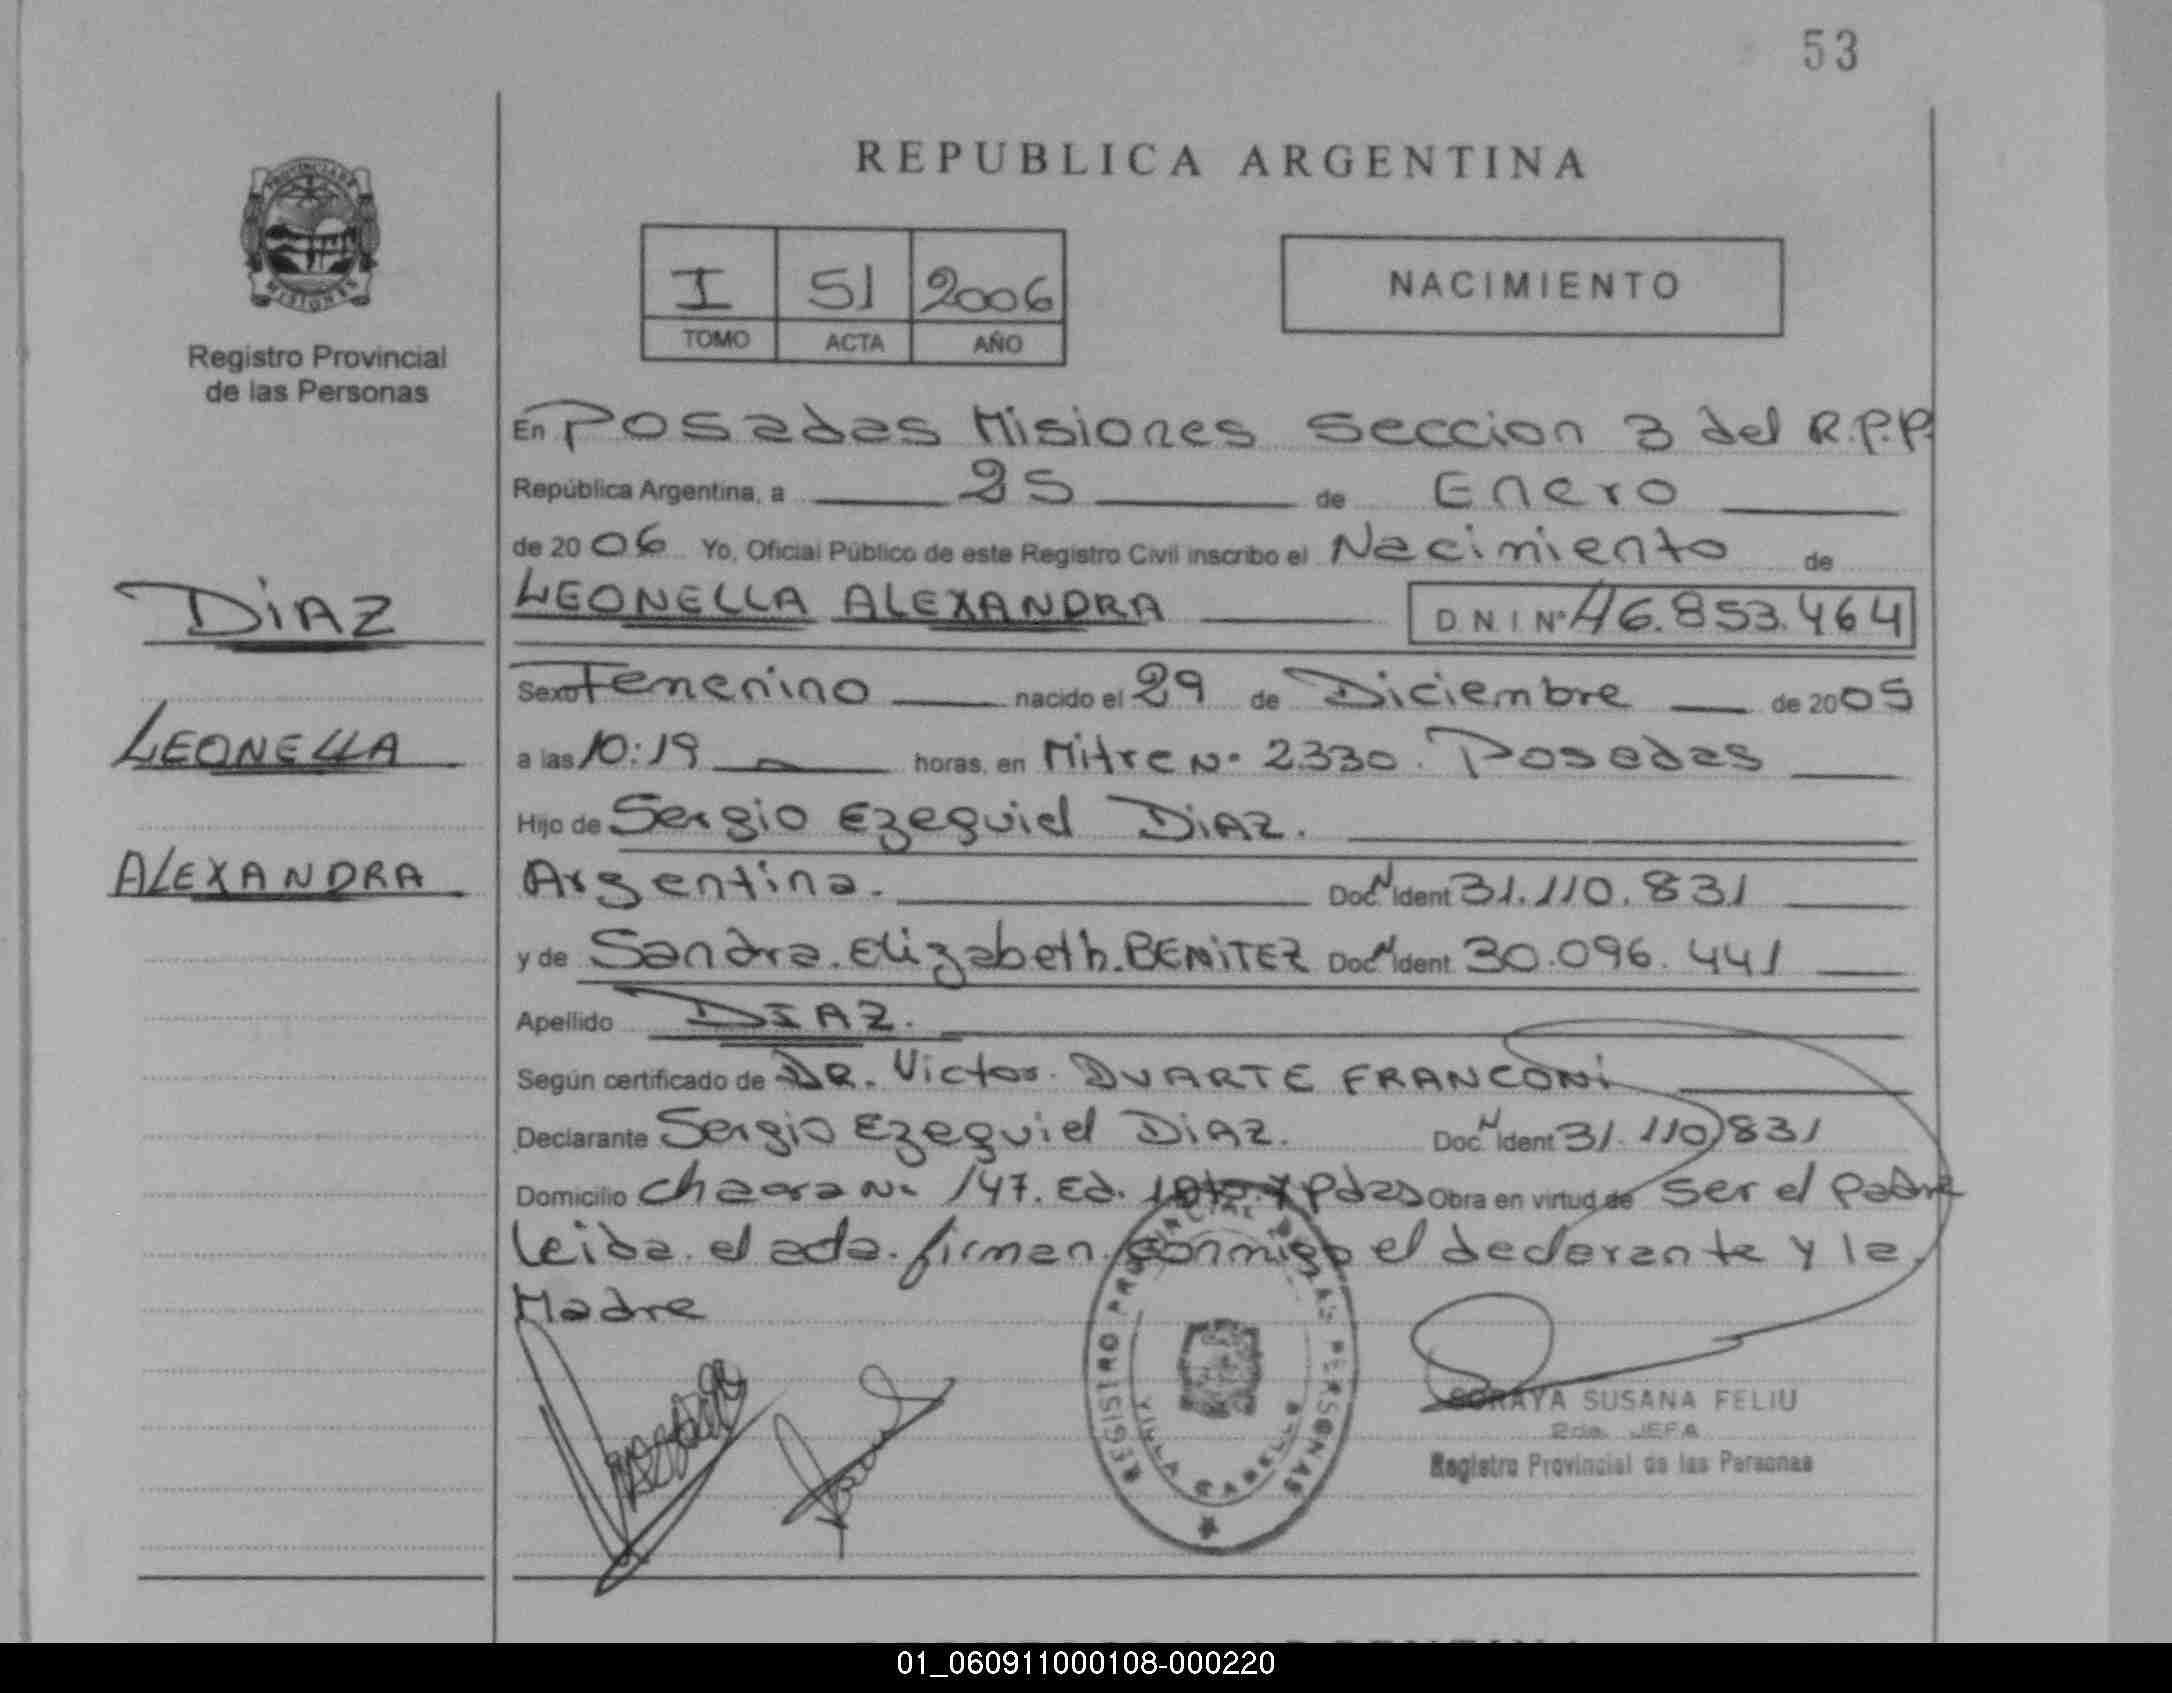 53
REPUBLICA ARGENTINA
PROVINCIA DE
MISIONES
Registro Provincial
de las Personas
I 51 2006
TOMO ACTA AÑO
NACIMIENTO
En Posadas Misiones Seccion 3 del R.P.P.
República Argentina, a 25 de Enero
de 2006 Yo, Oficial Público de este Registro Civil inscribo el Nacimiento de
DIAZ
LEONELLA ALEXANDRA D.N.I Nº 46.853.464
Sexo Femenino nacido el 29 de Diciembre de 2005
LEONELLA
a las 10:19 horas, en Mitre Nº 2330. Posadas
Hijo de Sergio Ezequiel DIAZ.
ALEXANDRA
Argentina. Doc. N Ident 31.110.831
y de Sandra Elizabeth BENITEZ Doc. N Ident 30.096.441
Apellido DIAZ.
Según certificado de DR. Victor DUARTE FRANCONI
Declarante Sergio Ezequiel DIAZ. Doc. N Ident 31.110831
Domicilio chacra Nº 147. Ed. Pdas Obra en virtud de ser el padre
leida el acta firman conmigo el declarante y la
Madre
REGISTRO PROVINCIAL DE LAS PERSONAS
VILLA CABELLO
SORAYA SUSANA FELIU
2da. JEFA
Registro Provincial de las Personas
01_060911000108-000220